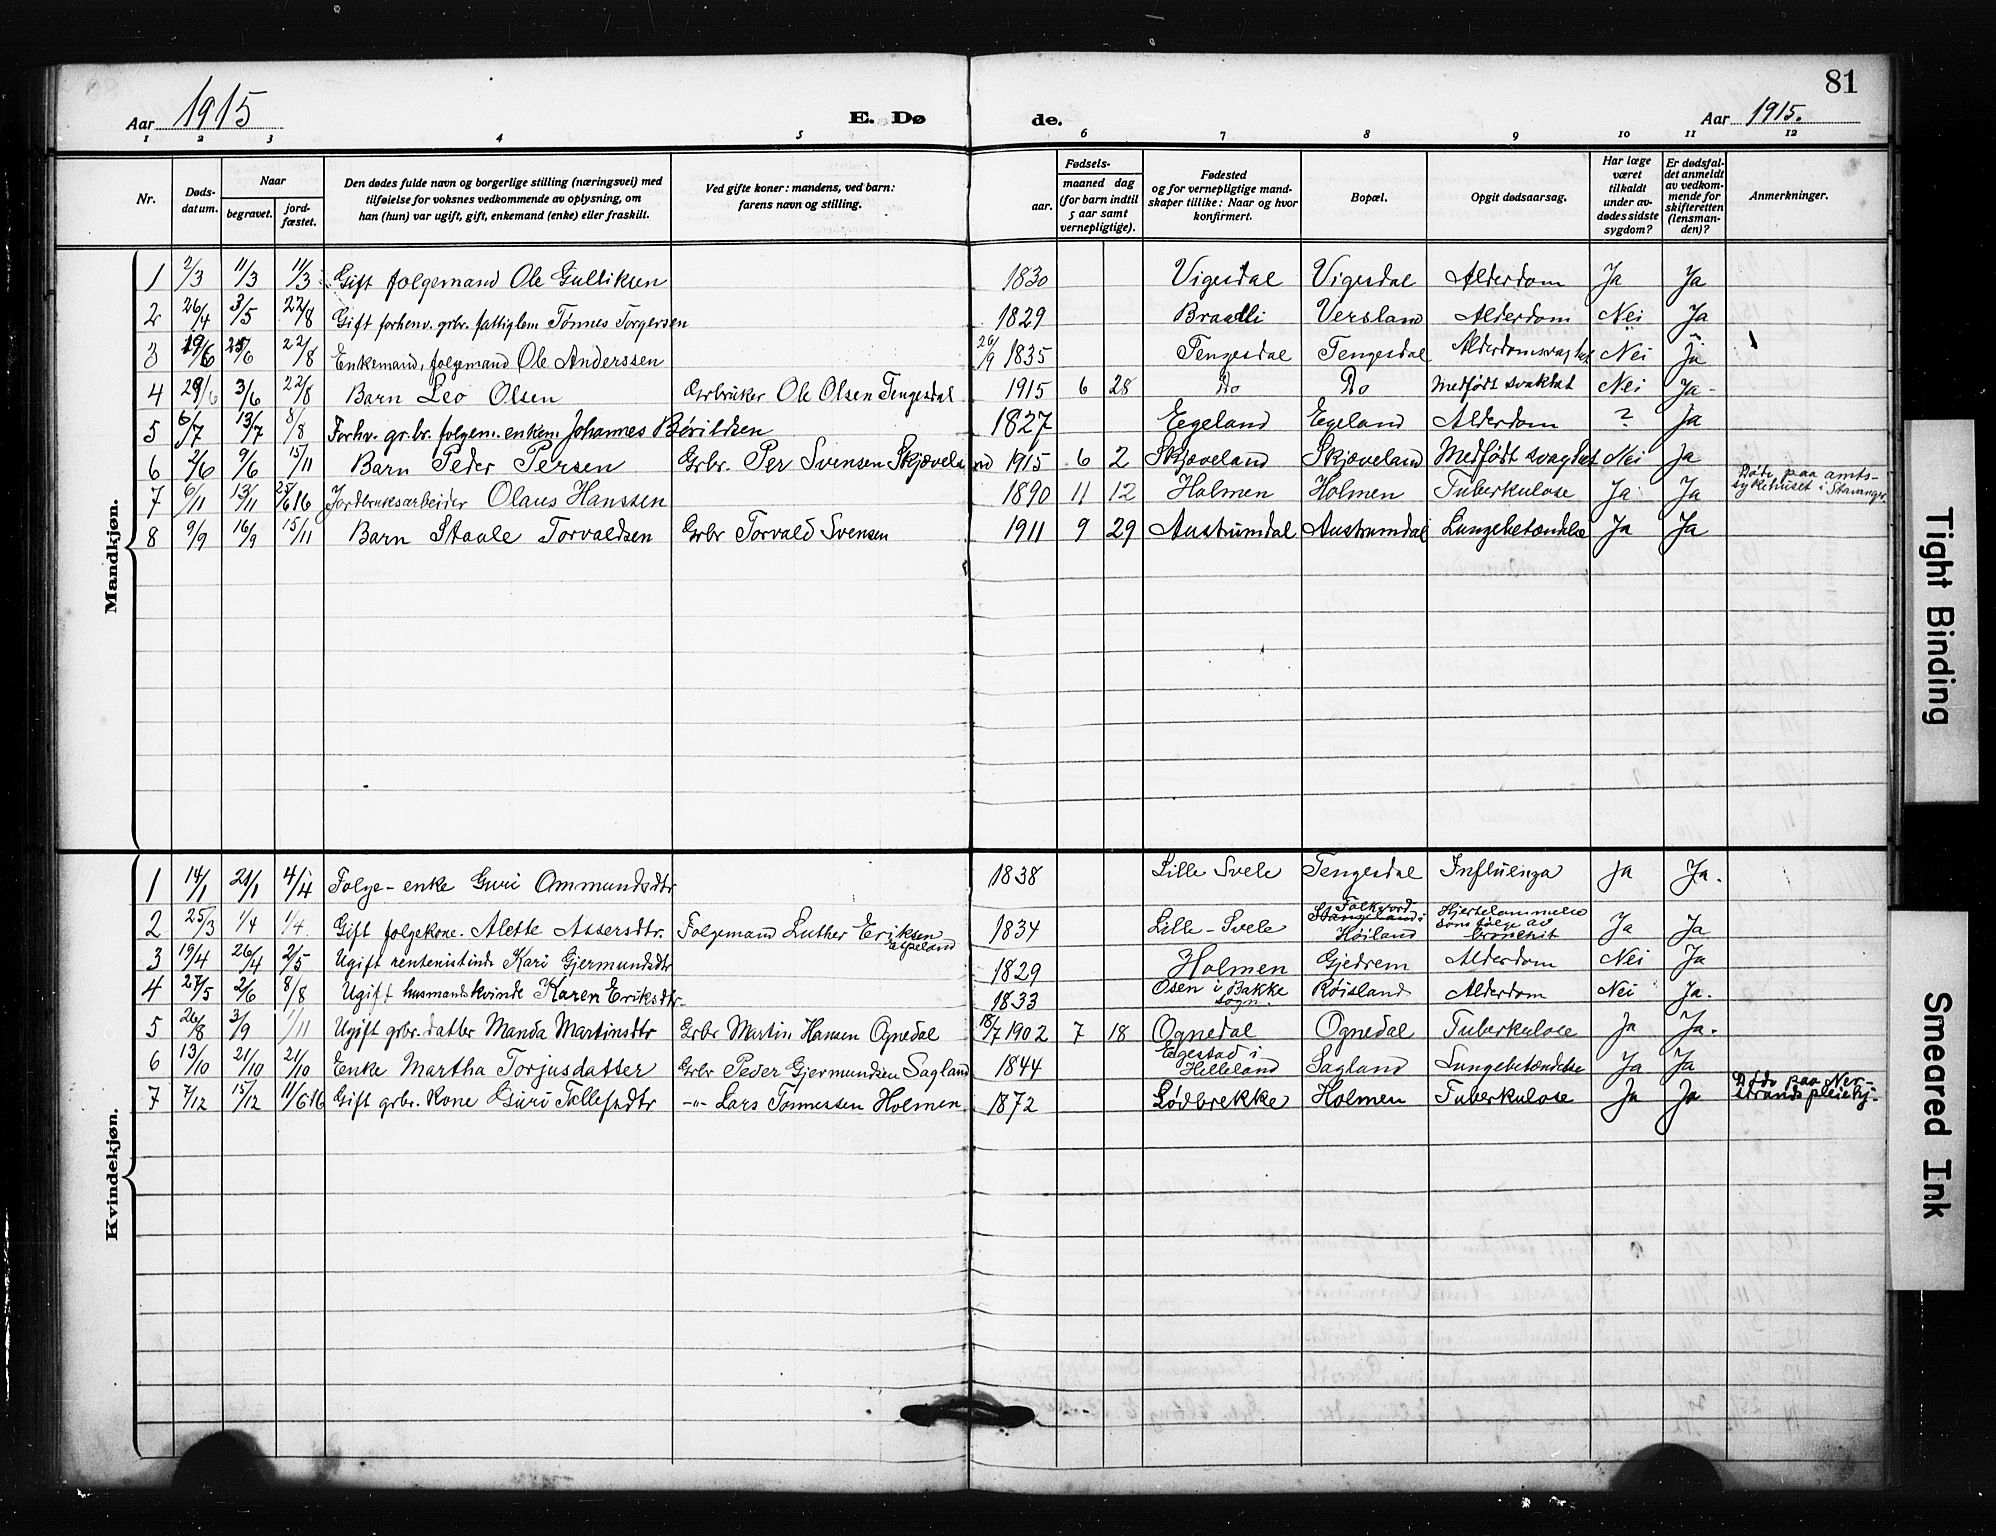 81
Aar 1915 E. Døde. Aar 1915.
1 2 3 4 5 6 7 8 9 10 11 12
Nr.
Døds-
datum.
Naar
begravet.
jord-
fæstet.
Den dødes fulde navn og borgerlige stilling (næringsvei) med
tilføielse for voksnes vedkommende av oplysning, om
han (hun) var ugift, gift, enkemand (enke) eller fraskilt.
Ved gifte koner: mandens, ved barn:
farens navn og stilling.
Fødsels-
aar.
maaned dag
(for barn indtil
5 aar samt
vernepligtige).
Fødested
og for vernepligtige mand-
skaper tillike: Naar og hvor
konfirmert.
Bopæl.
Opgit dødsaarsag.
Har læge
været
tilkaldt
under av-
dødes sidste
sygdom?
Er dødsfal-
det anmeldt
av vedkom-
mende for
skifteretten
(lensman-
den)?
Anmerkninger.
Mandkjøn.
1 2/3 11/3 11/3 Gift folgemand Ole Gulliksen 1830 Vigesdal Vigesdal Alderdom Ja Ja
2 26/4 3/5 22/8 Gift forhenv. grbr. fattiglem Tønnes Torgersen 1829 Versland Alderdom Nei Ja
3 19/6 25/6 22/8 Enkemand, folgemand Ole Anderssen 26/9 1835 Tengesdal Tengesdal Nei Ja
4 3/6 22/8 Barn Leo Olsen Grbruker Ole Olsen Tengesdal 1915 6 28 Do Do Medfødt svakhet Nei Ja
5 6/7 13/7 8/8 Forhv. gr.br. folgem. enkem. Johannes Børildsen 1827 Egeland Egeland Alderdom ? Ja
6 2/6 9/6 15/11 Barn Peder Persen Grbr. Per Svensen Skjæveland 1915 6 2 Skjæveland Skjæveland Medfødt svaghet Nei Ja
7 6/11 13/11 25/6 16 Jordbruksarbeider Olaus Hanssen 1890 11 12 Holmen Holmen Tuberkulose Ja Ja Døde paa amts-
sykehuset i Stavanger
8 9/9 16/9 15/11 Barn Staale Torvaldsen Grbr Torvald Svensen 1911 9 29 Austrumdal Austrumdal Lungebetændelse Ja Ja
Kvindekjøn.
1 14/1 21/1 4/4 Folge-enke Guri Ommundsdtr 1838 Lille Svele Tengesdal Influenza Ja Ja.
2 25/3 1/4 1/4 Gift folgekone. Alette Assersdtr. Folgemand Luther Eriksen 1834 Lille-Svele Folkvord
Høiland Hjertelammelse
som følge av
bronchit Ja Ja
3 19/4 26/4 2/5 Ugift rentenistinde Kari Gjermundsdtr 1829 Holmen Gjedrem Alderdom Nei Ja
4 27/5 2/6 8/8 Ugift husmandskvinde Karen Eriksdtr. 1833 Osen i Bakke
sogn. Røisland Alderdom Nei Ja.
5 26/8 3/9 Ugift grbr. datter Manda Martinsdtr Grbr Martin Hansen Ognedal 18/7 1902 7 18 Ognedal Ognedal Tuberkulose Ja Ja.
6 13/10 21/10 21/10 Enke Martha Torjusdatter Grbr Peder Gjermundsen Sagland 1844 Egestad i
Helleland Sagland Lungebetændelse Ja Ja
7 7/12 15/12 11/6 16 Gift grbr. Kone Guri Tollefsdtr -"- Lars Tønnessen Holmen 1872 Lødbrekke Holmen Tuberkulose Ja Ja Døde paa Ner-
strands pleiehj.
Tight Binding
Smeared Ink